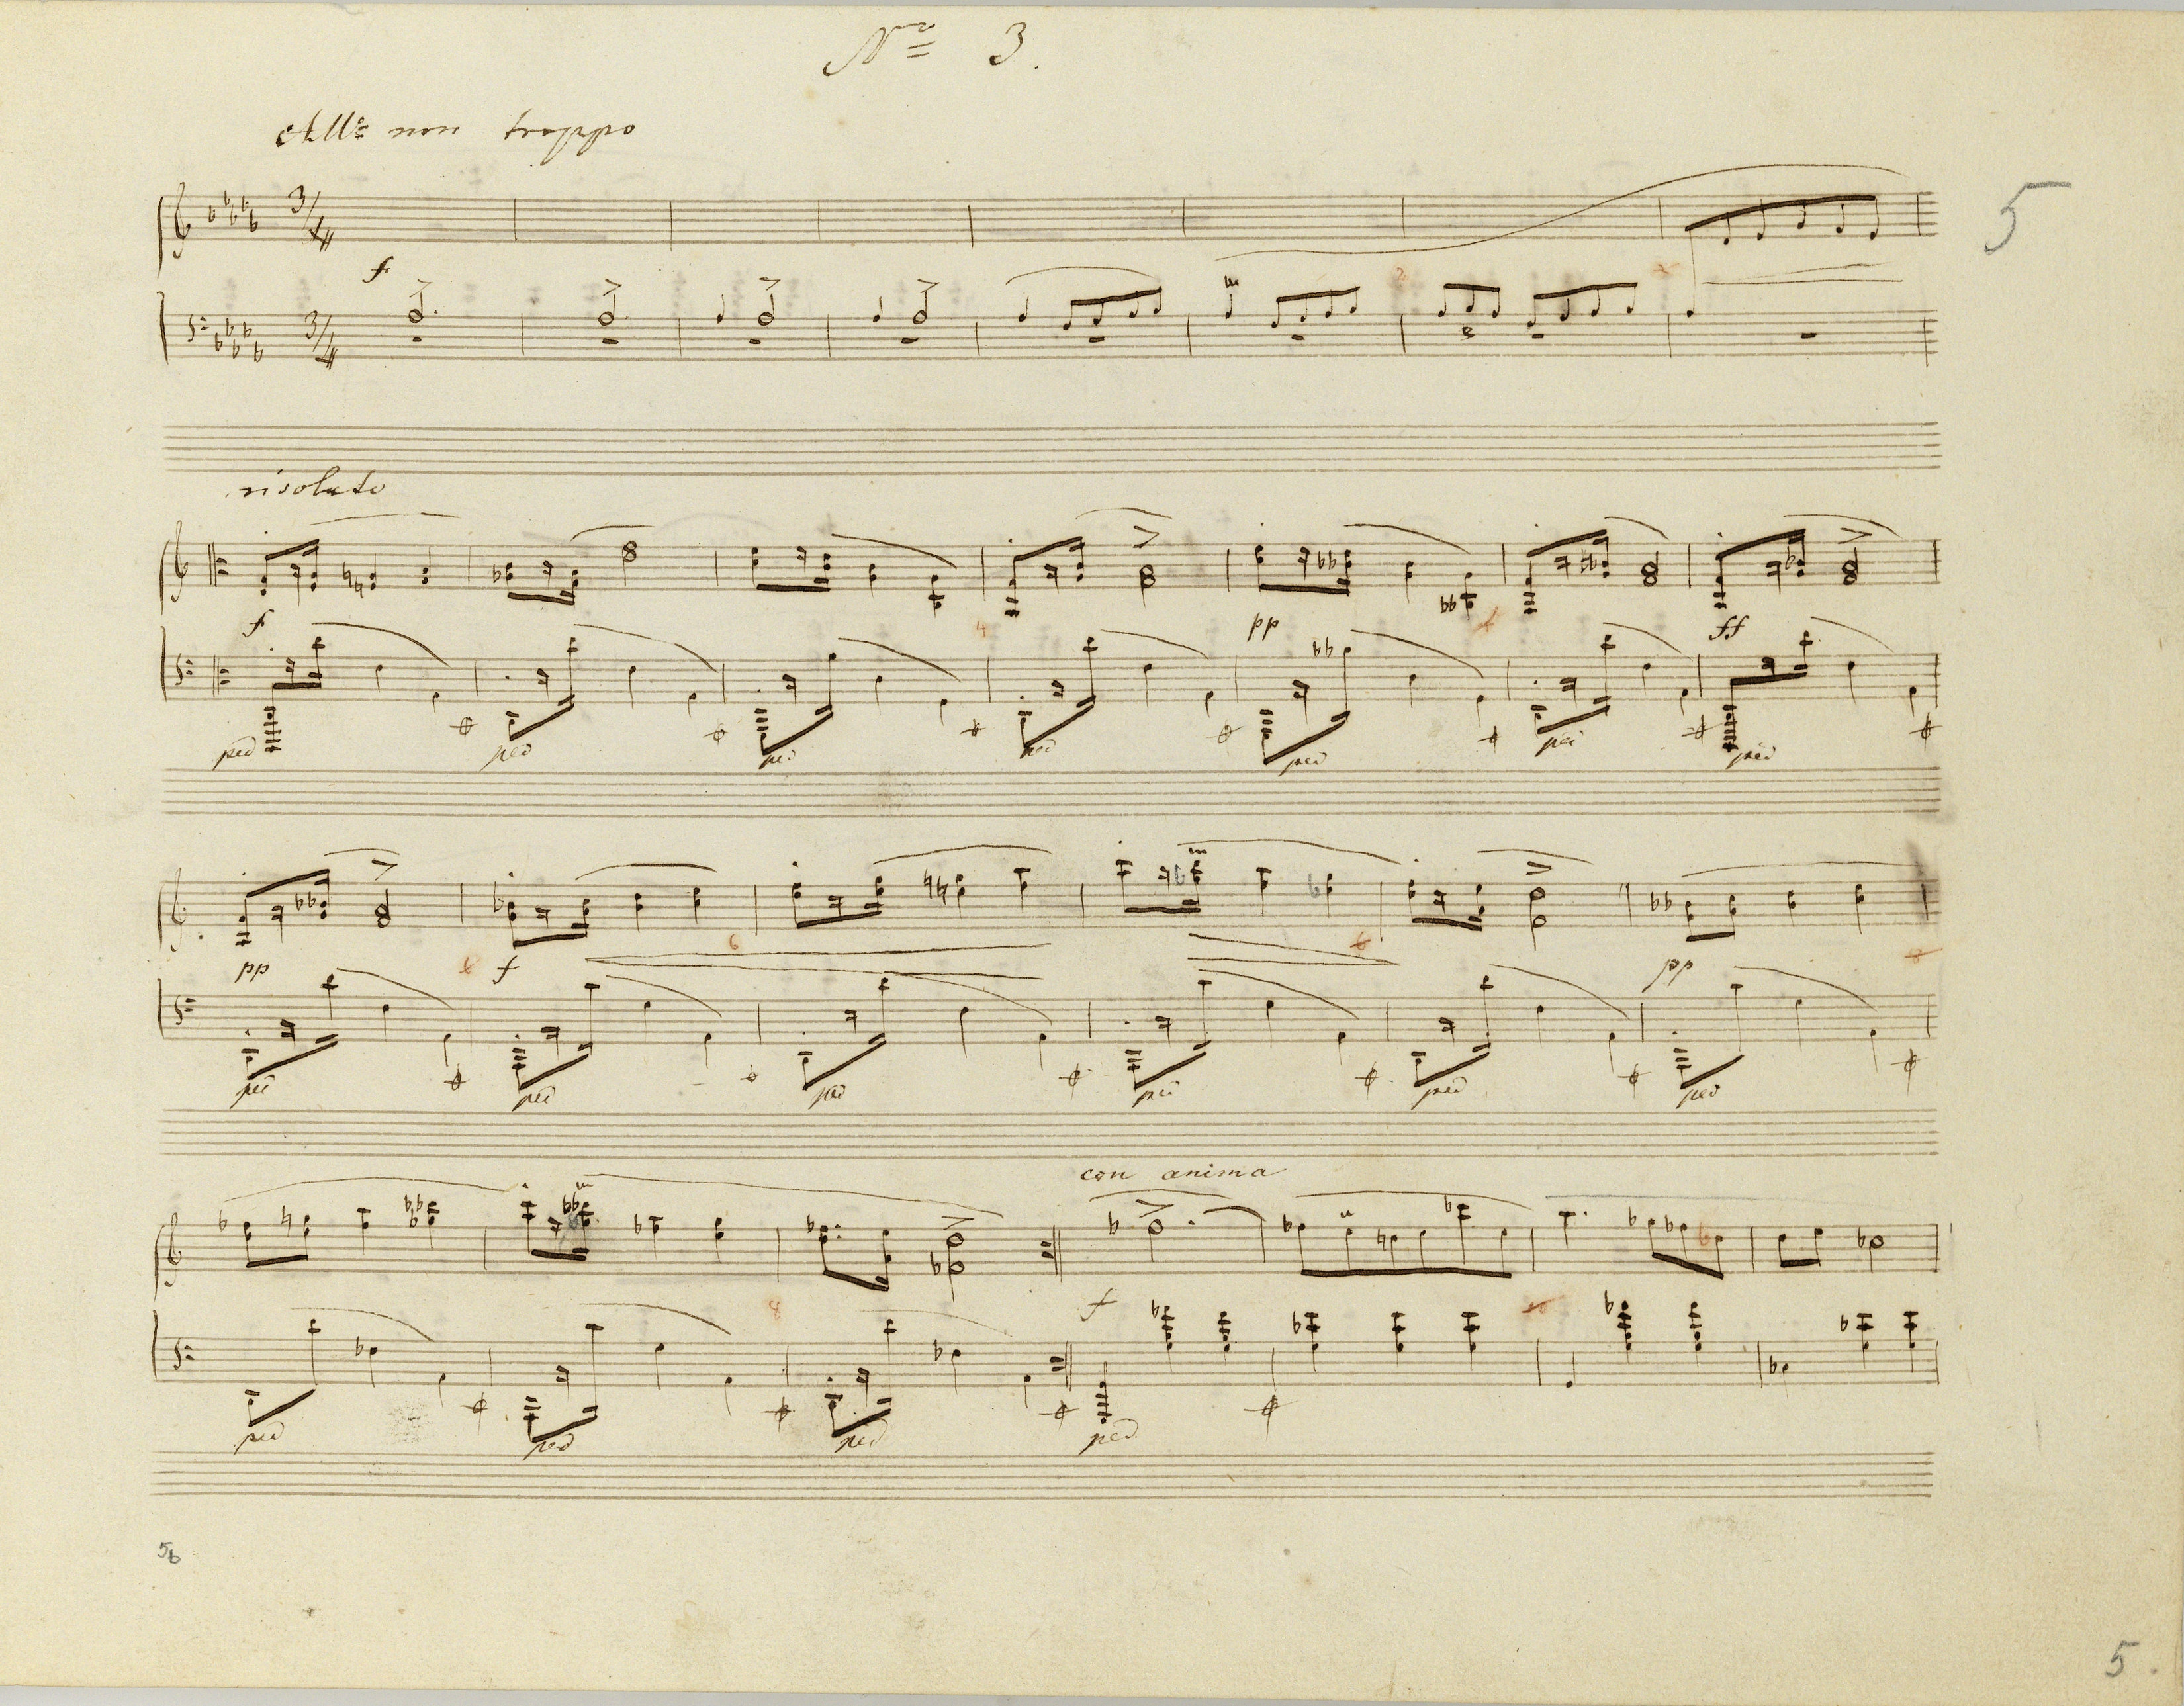 No 3.
Allo non troppo
5
3/4
f
3/4
risoluto
f pp ff
ped ped ped ped ped ped ped
pp f pp
ped ped ped ped ped ped
con anima
f
ped ped ped ped
5b
5.